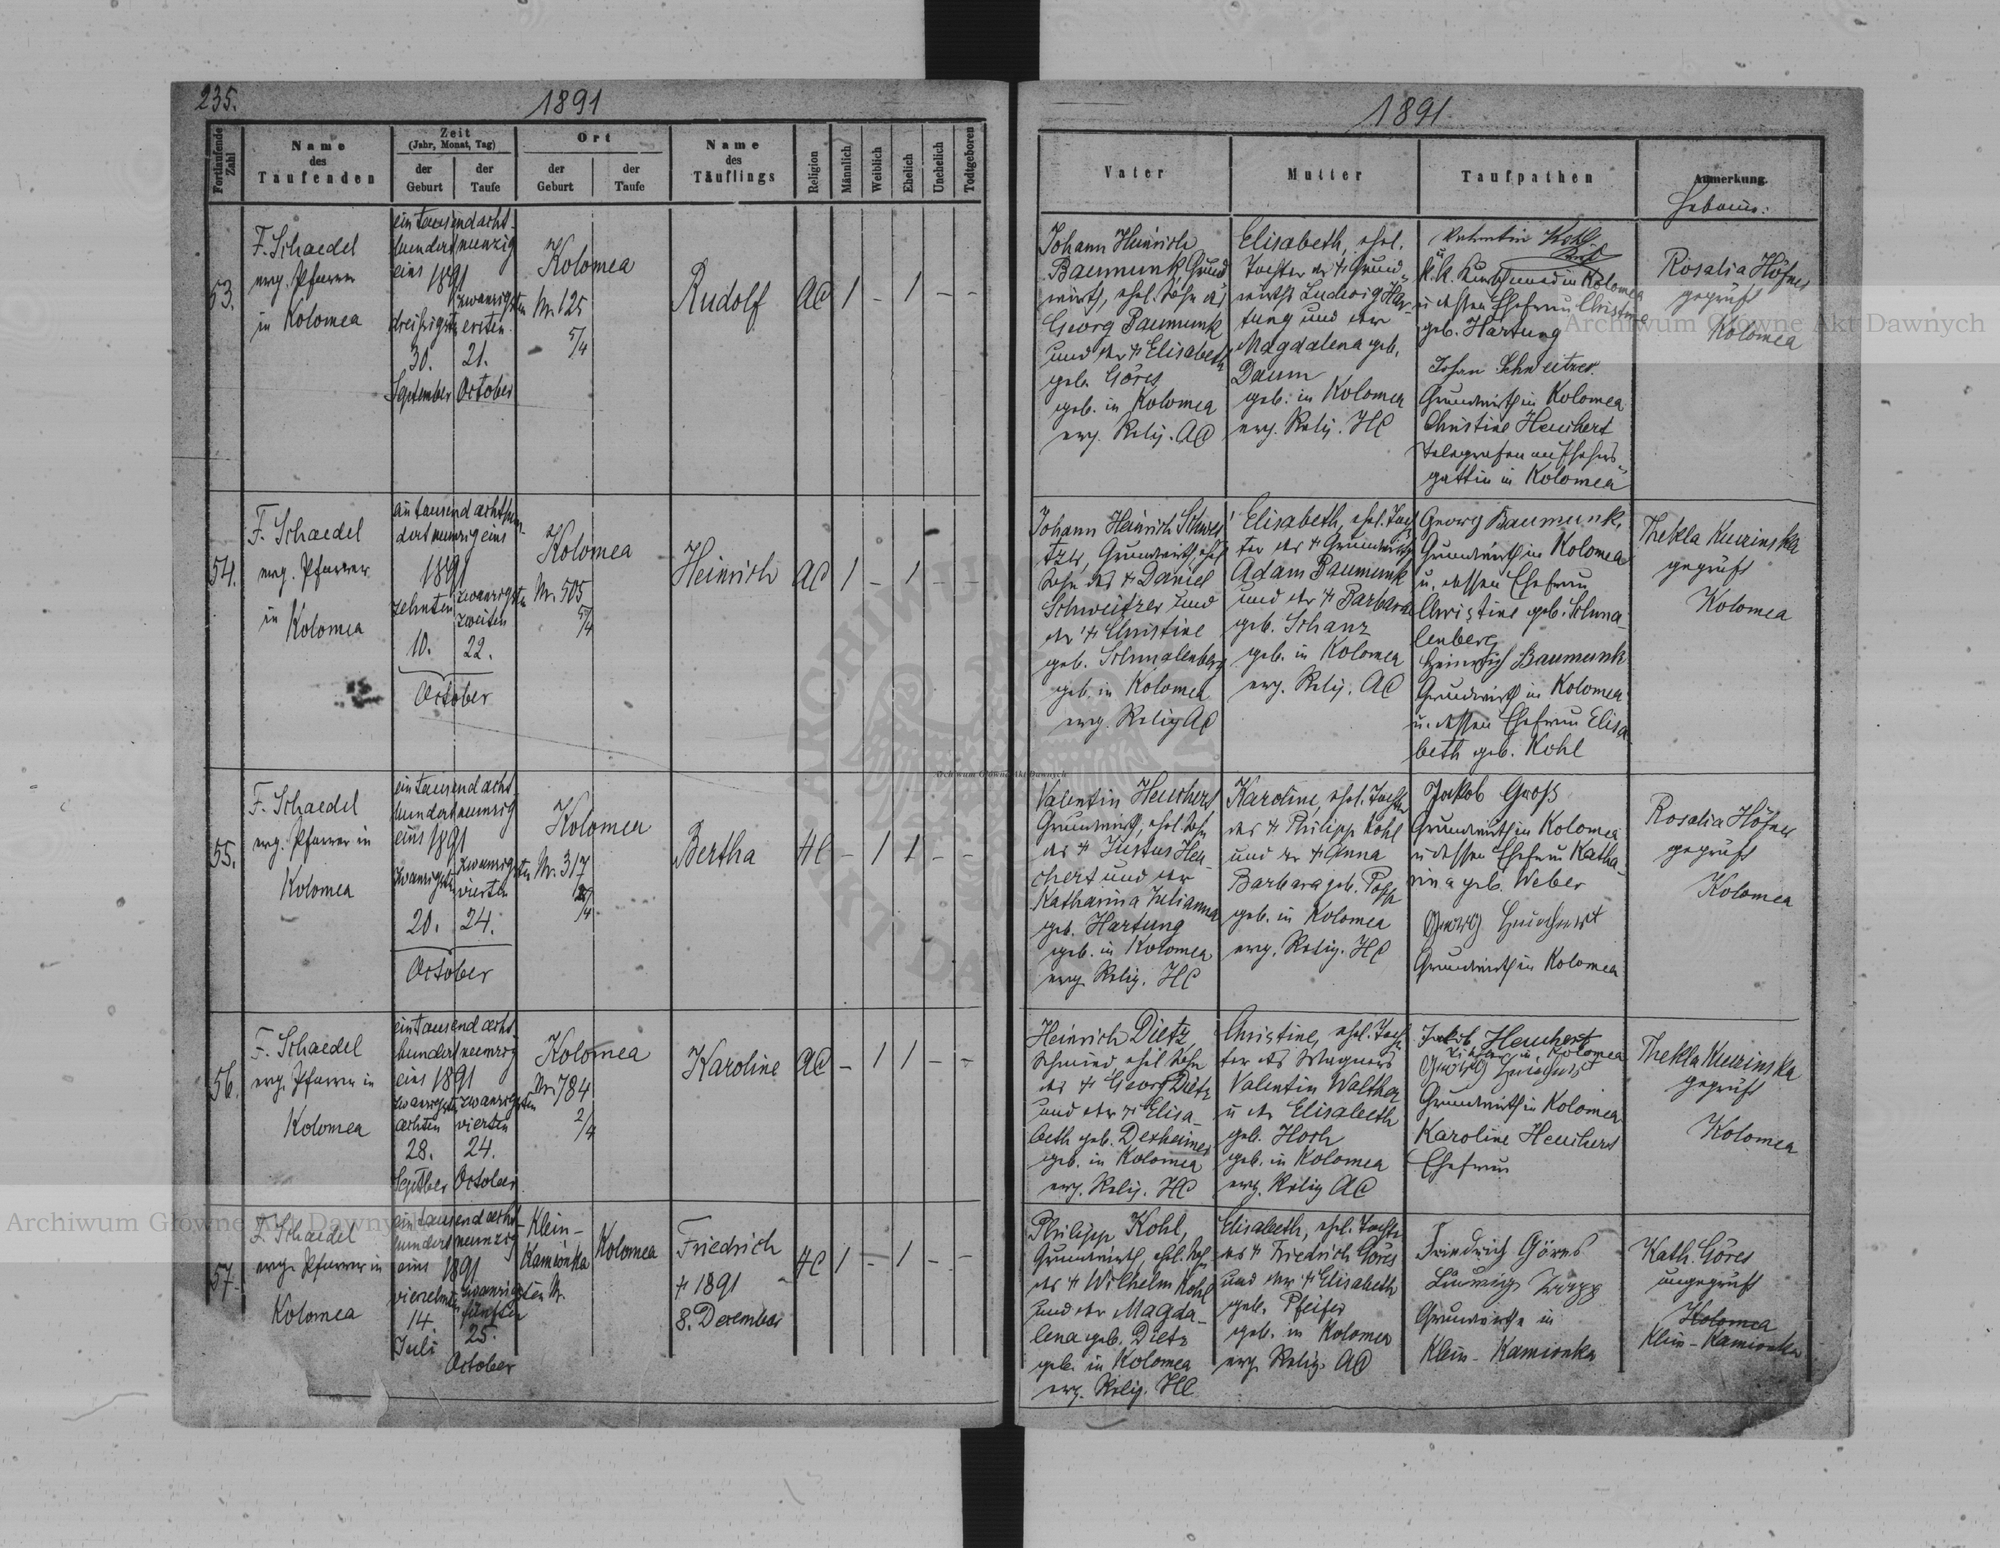 235.
1891
Fortlaufende Zahl
Name des Taufenden
Zeit (Jahr, Monat, Tag)
der Geburt
der Taufe
Ort
der Geburt
der Taufe
Name des Täuflings
Religion
Männlich
Weiblich
Ehelich
Unehelich
Todtgeboren
53.
F. Schaedel
evg. Pfarrer
in Kolomea
ein tausend acht-
hundert neunzig
eins 1891
dreißigsten
30.
September
zwanzigsten
ersten
21.
October
Kolomea
Nr. 125
5/4
Rudolf
AC
1 – 1 – –
54.
F. Schaedel
evg. Pfarrer
in
Kolomea
ein tausend achthun-
dert neunzig eins
1891
zehnten
10.
zwanzigsten
zweiten
22.
October
Kolomea
Nr. 505
5/4
Heinrich
AC
1 – 1 – –
55.
F. Schaedel
evg. Pfarrer in
Kolomea
ein tausend acht-
hundert neunzig
eins 1891
zwanzigsten
20.
zwanzigsten
vierten
24.
October
Kolomea
Nr. 317
Bertha
HC
– 1 1 – –
56.
F. Schaedel
evg. Pfarrer in
Kolomea
ein tausend acht-
hundert neunzig
eins 1891
zwanzigsten
achten
28.
Septber
zwanzigsten
vierten
24.
October
Kolomea
Nr. 784
2/4
Karoline
AC
– 1 1 – –
57.
F. Schaedel
evg. Pfarrer in
Kolomea
ein tausend acht-
hundert neunzig
eins 1891
vierzehnten
14.
Juli
zwanzigsten
fünften
25.
October
Klein-
Kamionka
Nr.
Kolomea
Friedrich
† 1891
8. Dezember
HC
1 – 1 – –
1891.
Vater
Mutter
Taufpathen
Anmerkung.
Hebamme:
Johann Heinrich
Baumunk Grund
wirth, ehel. Sohn des
Georg Baumunk
und der † Elisabeth
geb. Göres
geb. in Kolomea
evg. Relig. AC
Elisabeth, ehel.
Tochter des † Grund-
wirths Ludwig Har-
tung und der
Magdalena geb.
Daum
geb. in Kolomea
evg. Relig. HC
Valentin
k. k. in Kolomea
u dessen Ehefrau Christine
geb. Hartung
Johan Schweitzer
Grundwirth in Kolomea
Christine Heuchert
Telegrafenaufsehers-
gattin in Kolomea
Rosalia Höfner
geprüft
Kolomea
Johann Heinrich Schwei-
tzer, Grundwirth, ehel.
Sohn des † Daniel
Schweitzer und
der † Christine
geb. Schmalenberg
geb. in Kolomea
evg. Relig AC
Elisabeth, ehel. Toch
ter des † Grundwirths
Adam Baumunk
und der † Barbara
geb. Schanz
geb. in Kolomea
evg. Relig. AC
Georg Baumunk,
Grundwirth in Kolomea
u. dessen Ehefrau
Christine geb. Schma-
lenberg
Heinrich Baumunk
Grundwirth in Kolomea
u. dessen Ehefrau Elisa-
beth geb. Kohl
Thekla Kurzinska
geprüft
Kolomea
Valentin Heuchert
Grundwirth, ehel. Sohn
des † Justus Heu-
chert und der
Katharina Julianna
geb. Hartung
geb. in Kolomea
evg. Relig. HC
Karoline, ehel. Tochter
des † Philipp Kohl
und der † Anna
Barbara geb. Popp
geb. in Kolomea
evg. Relig. HC
Jakob Groß
Grundwirth in Kolomea
u dessen Ehefrau Katha-
rina geb. Weber
Georg Heuchert
Grundwirth in Kolomea
Rosalia Höfner
geprüft
Kolomea
Heinrich Dietz,
Schmied, ehel. Sohn
des † Georg Dietz
und der † Elisa-
beth geb. Dexheimer
geb. in Kolomea
evg. Relig. HC
Christine, ehel. Toch-
ter des Wagners
Valentin Walther
u der Elisabeth
geb. Horh
geb. in Kolomea
evg. Relig AC
Jakob Heuchert
in Kolomea
Georg Heuchert
Grundwirth in Kolomea
Karoline Heuchert
Ehefrau
Thekla Kurzinska
geprüft
Kolomea
Philipp Kohl,
Grundwirth, ehel. Sohn
des † Wilhelm Kohl
und der Magda-
lena geb. Dietz
geb. in Kolomea
evg. Relig. HC
Elisabeth, ehel. Tochter
des † Friedrich Göres
und der † Elisabeth
geb. Pfeifer
geb. in Kolomea
evg. Relig. AC
Friedrich Göres
Ludwig
Grundwirthe in
Klein-Kamionka
Kath. Göres
ungeprüft
Kolomea
Klein-Kamionka
Archiwum Główne Akt Dawnych
Archiwum Główne Akt Dawnych
Archiwum Główne Akt Dawnych